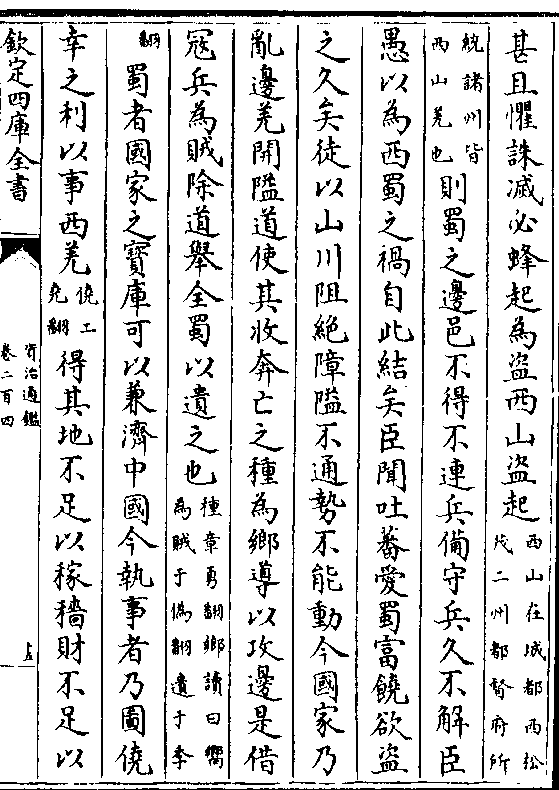 甚且懼誅滅必蜂起為盜西山盜起西山在成都西松茂二州都督府所
統諸州皆西山羌也則蜀之邊邑不得不連兵備守兵久不解臣
愚以為西蜀之禍自此結矣臣聞吐蕃愛蜀富饒欲盜
之久矣徒以山川阻絶障隘不通勢不能動今國家乃
亂邊羌開隘道使其收奔亡之種為鄉導以攻邊是借
寇兵為賊除道舉全蜀以遺之也種章勇翻鄉讀曰嚮為賊于偽翻遺于季
翻蜀者國家之寶庫可以兼濟中國今執事者乃圖僥
幸之利以事西羌僥工堯翻得其地不足以稼穡財不足以
欽定四庫全書
資治通鑑
卷二百四